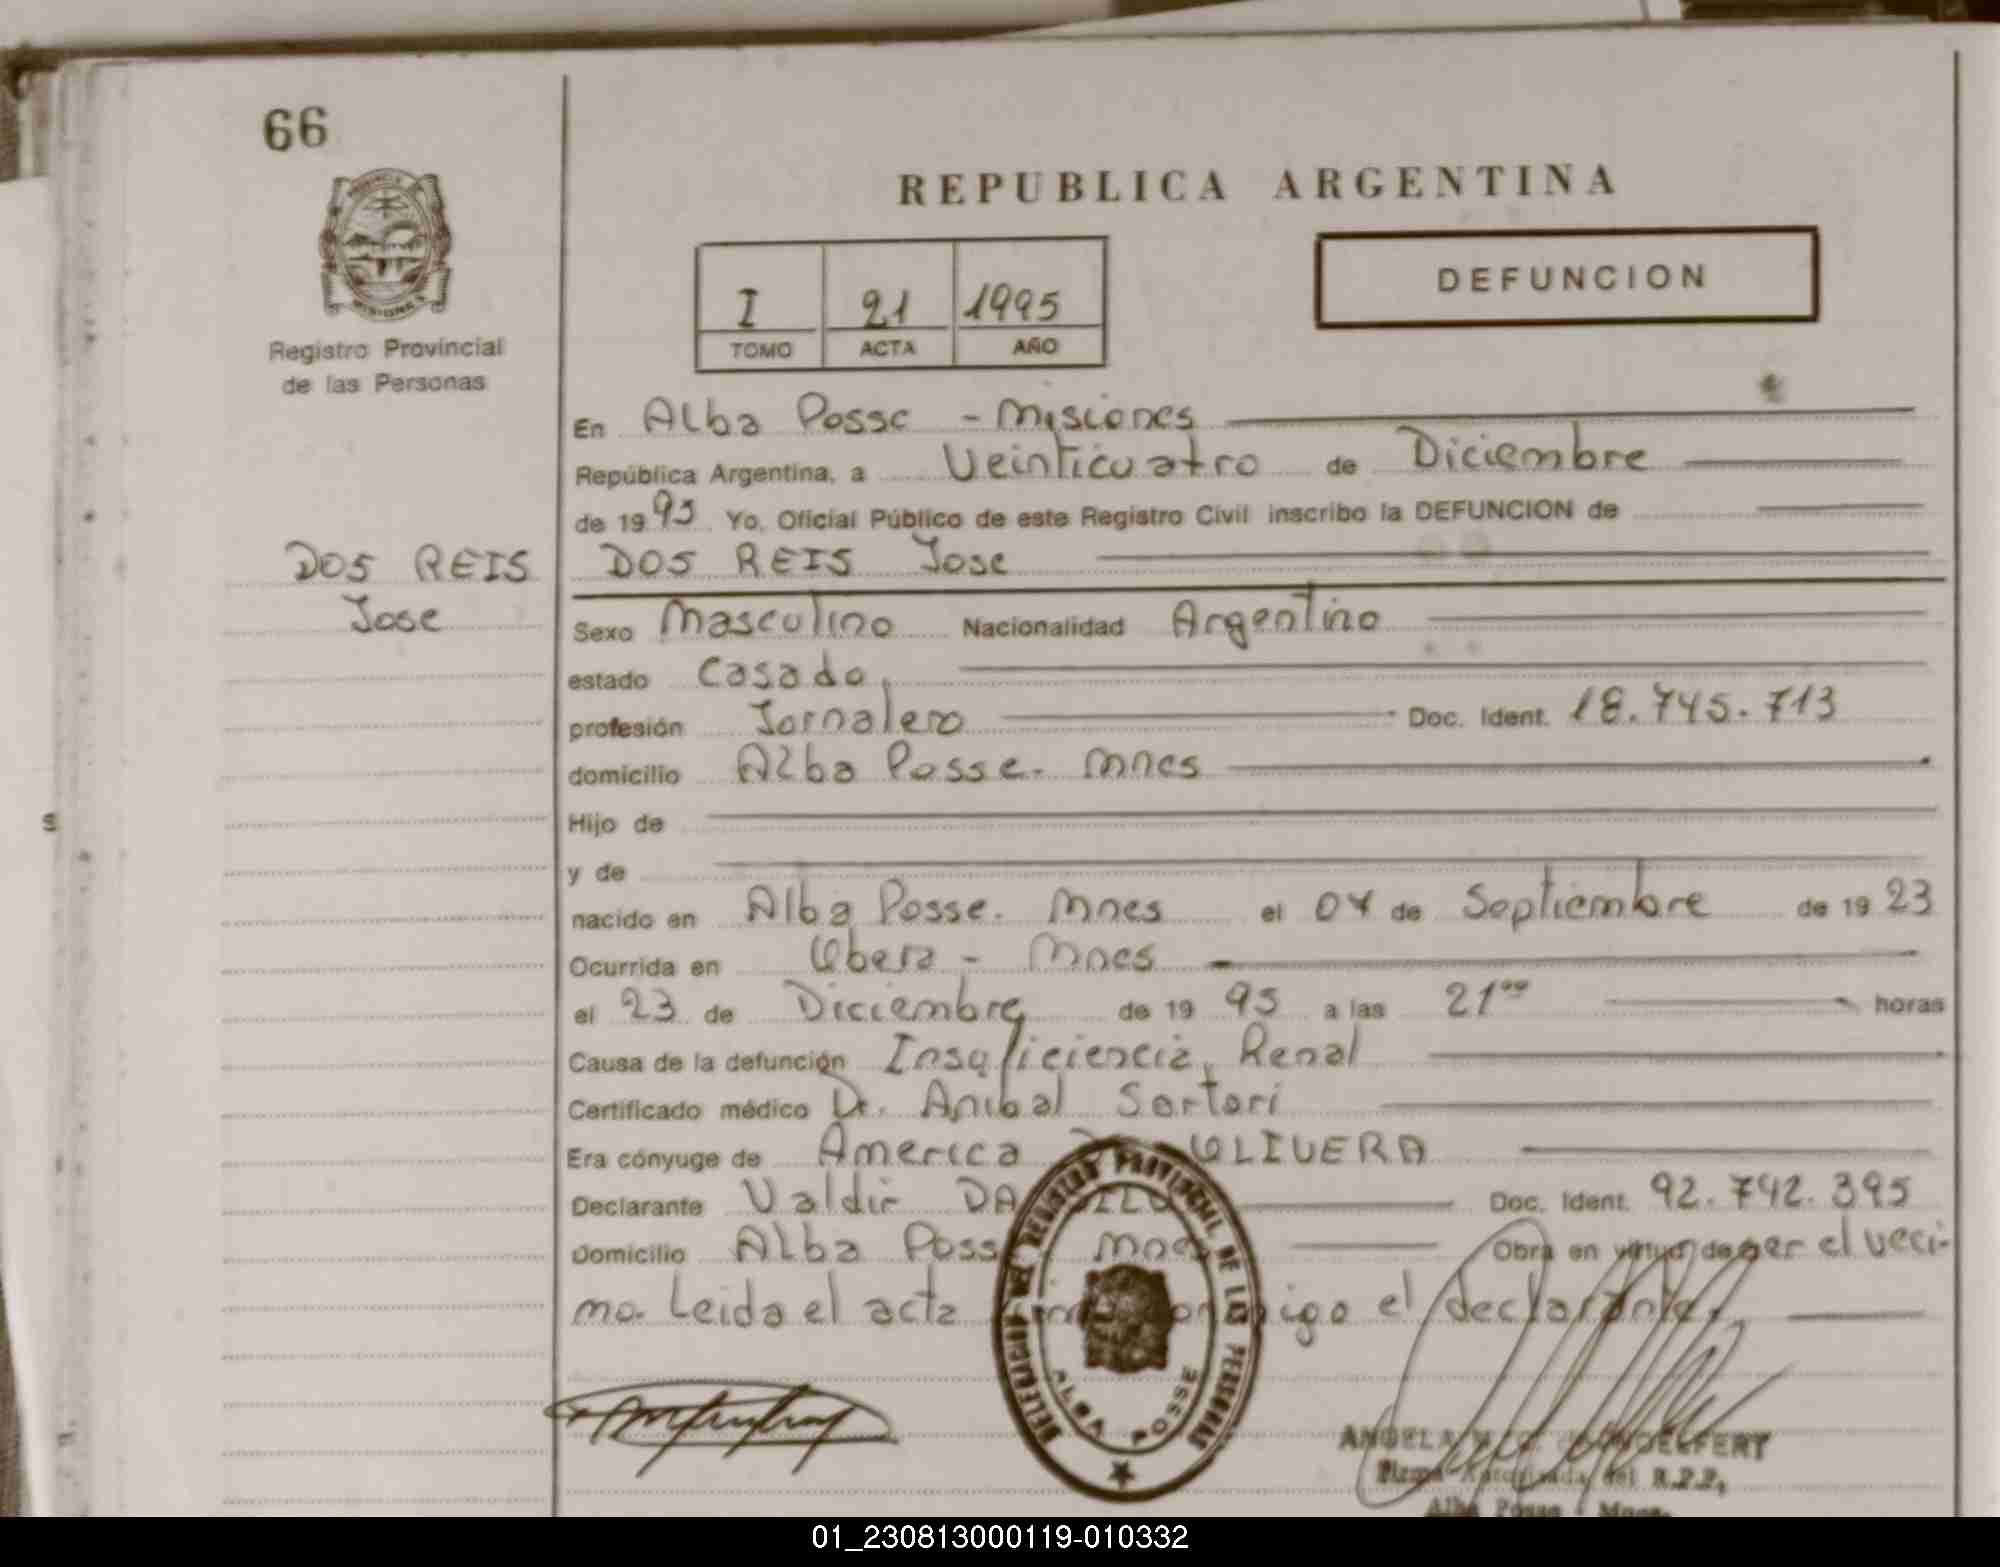 66
REPUBLICA ARGENTINA
PROVINCIA
MISIONES
Registro Provincial
de las Personas
I 21 1995
TOMO ACTA AÑO
DEFUNCION
En Alba Posse - Misiones
República Argentina, a Veinticuatro de Diciembre
de 19 95 Yo, Oficial Público de este Registro Civil inscribo la DEFUNCION de
DOS REIS DOS REIS Jose
Jose
Sexo Masculino Nacionalidad Argentino
estado Casado
profesión Jornalero Doc. Ident. 18.745.713
domicilio Alba Posse. Mnes
Hijo de
y de
nacido en Alba Posse. Mnes el 04 de Septiembre de 19 23
Ocurrida en Obera - Mnes
el 23 de Diciembre de 19 95 a las 21⁰⁰ horas
Causa de la defunción Insuficiencia Renal
Certificado médico Dr. Anibal Sartori
Era cónyuge de America OLIVERA
Declarante Valdir DA Doc. Ident. 92.742.395
Domicilio Alba Posse Mnes Obra en virtud de ser el veci-
no. Leida el acta firma conmigo el declarante.
DELEGACION DEL REGISTRO PROVINCIAL DE LAS PERSONAS
ALBA POSSE
ANGELA
Firma Autorizada del R.P.P.
Alba Posse - Mnes.
01_230813000119-010332